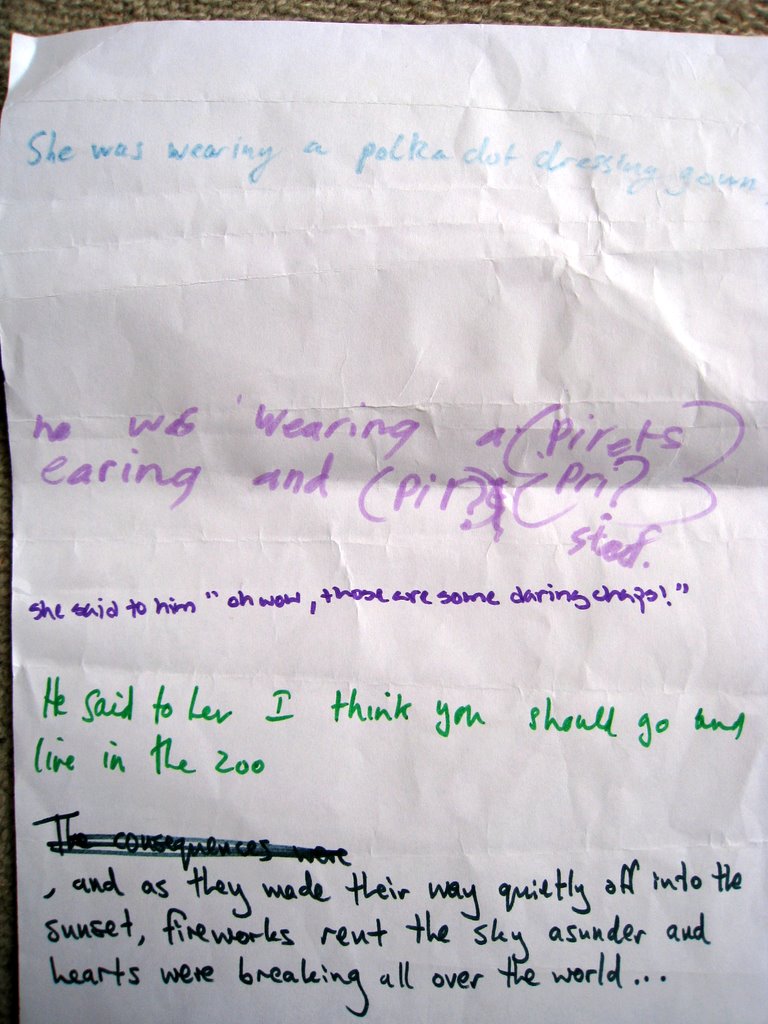 She was wearing a polka dot dressing gown,
he was wearing a (pirets
earing and (pir?) (pri?)
stod.
she said to him "oh wow, those are some daring chaps!"
He said to her I think you should go and
live in the zoo
The consequences were
, and as they made their way quietly off into the
sunset, fireworks rent the sky asunder and
hearts were breaking all over the world...